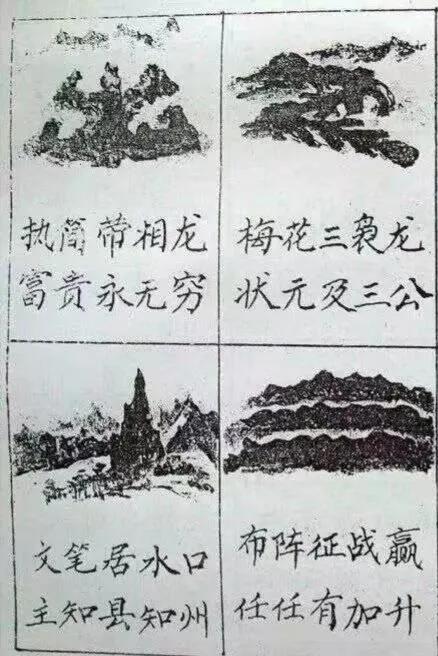 执简带相龙
富贵永无穷
梅花三袅龙
状元及三公
文笔居水口
主知县知州
布阵征战赢
任任有加升